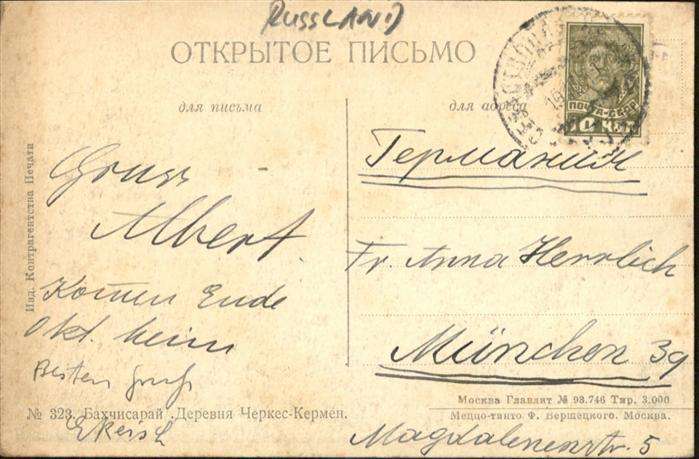 RUSSLAND
ОТКРЫТОЕ ПИСЬМО
для письма
для адреса
ПОЧТА СССР
10 КОП
Gruss
Albert.
Komen Ende
Okt. heim
Besten Gruß
Германии
Fr. Anna Herrlich
München 39
Magdalenenstr. 5
Изд. Контрагентства Печати
№ 323. Бахчисарай Деревня Черкес-Кермен.
Москва Главлит № 93.746 Тир. 3.000
Меццо-тинто Ф. Верщецкого. Москва.